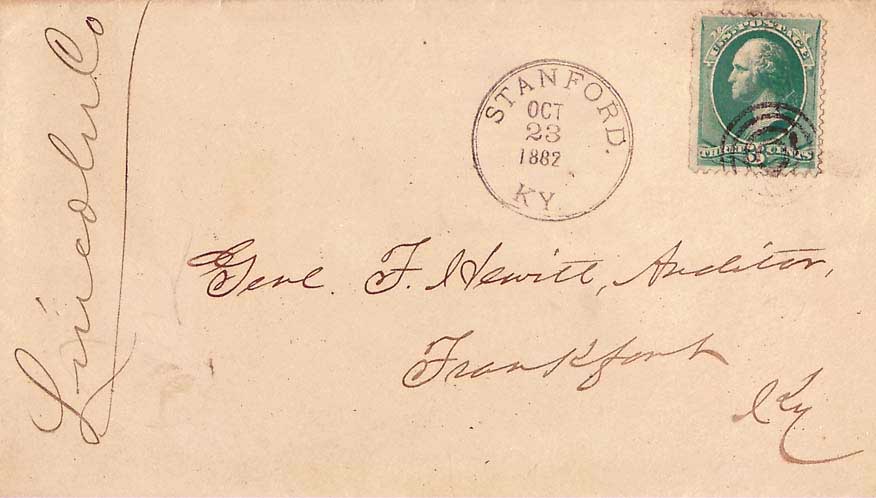 Lincoln Co
U.S. POSTAGE
THREE CENTS
STANFORD.
OCT
23
1882
KY.
Genl. F. Hewitt, Auditor,
Frankfort
Ky